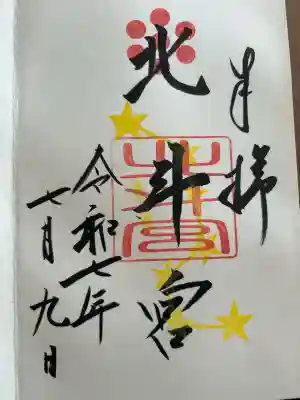 奉拝
北斗宮
令和七年
七月九日
北斗宮